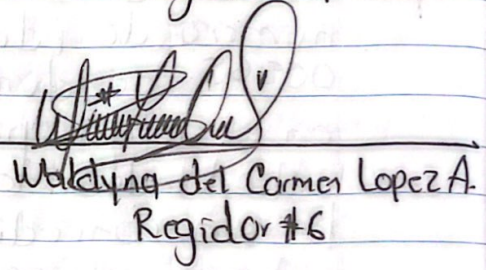 Waldyna del Carmen Lopez A.
Regidor #6